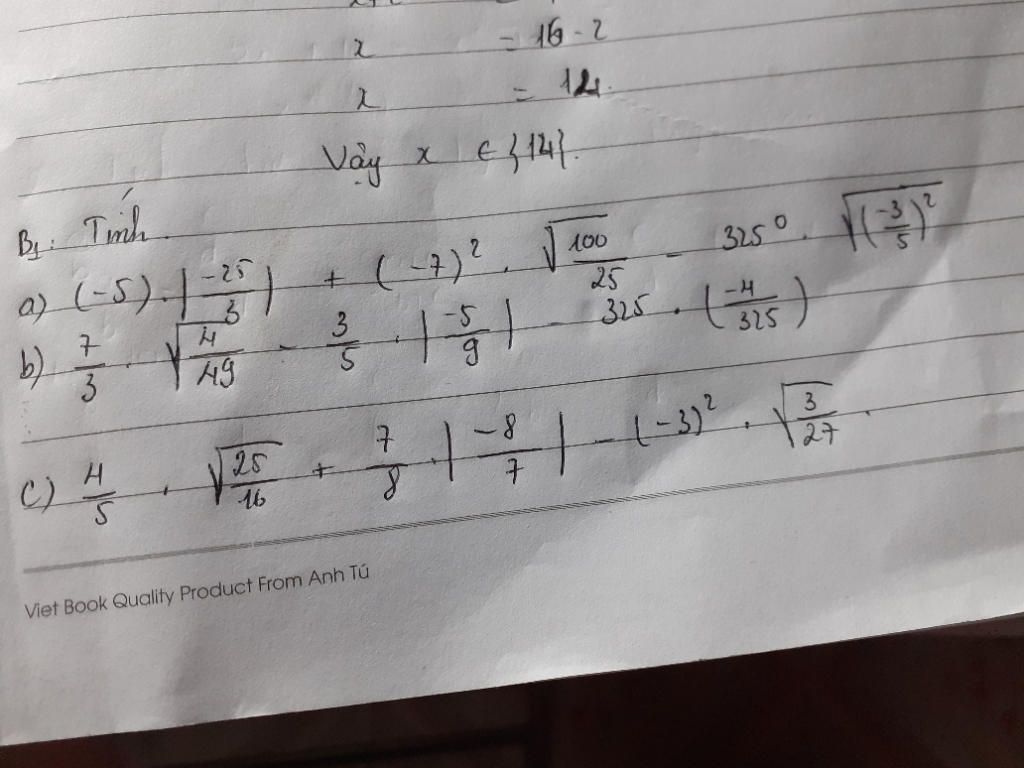 x = 16 - 2
x = 14.
Vậy x ∈ {14}.
B1: Tính
a) (-5) . |-25/3| + (-7)² . √(100/25) - 325⁰ . √((-3/5)²)
b) 7/3 . √(4/49) - 3/5 . |-5/9| - 325 . (-4/325)
c) 4/5 . √(25/16) + 7/8 . |-8/7| - (-3)² . √(3/27) .
Viet Book Quality Product From Anh Tú